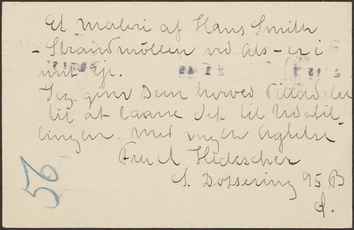 Et Maleri af Hans Smidth
- Strandmøllen ved Als - er i
mit Eje.
Jeg giver Dem herved Tilladelse
til at laane det til Udstil-
lingen. med megen Agtelse
Fru A.
S. Dossering 95 B
56